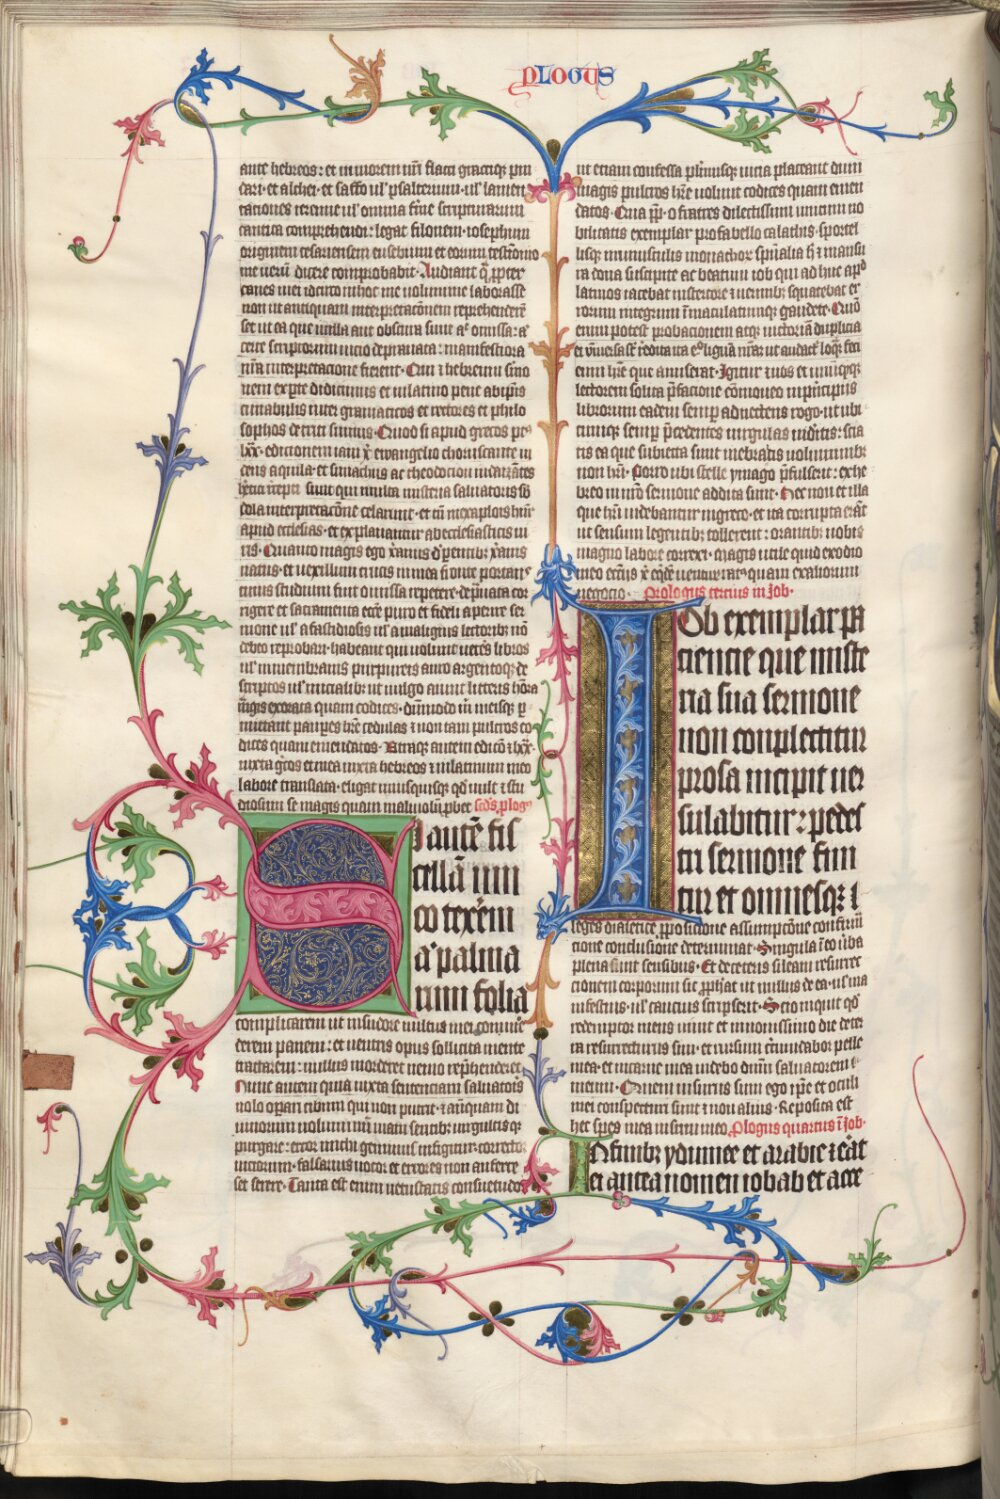 ploous
ante hebreos: et in morem nr̄i flacci greciqʒ pin
dari et alchei et saffo ul' psalterium ul' lamen
taciones ieremie ul' omnia ferme scripturarum
cantica comprehendi: legat filonem iosephum
originem cesariensem eusebium et eorum testīonio
me uerū dicere comprobabit. Audiant q̄ ꝓpter
canes mei idcirco in hoc me uolumine laborasse
non ut antiquam interpretacōnem reprehenderē
set ut ea que in illa aut obscura sunt aut omissa: aut
certe scriptorum uicio deprauata: manifestiora
nr̄a interpretacione fierent. Qui et hebreum sermo
nem ex parte didicimus et in latino pene ab ipsis
cunabulis inter gramaticos et rectores et philo
sophos detriti sumus. Quod si apud grecos post
lxx. edicionem iam xp̄i ewangelio choruscante iu
deus aquila et simachus ac theodocion iudaizantes
heretici recepti sunt qui multa misteria saluatoris sub
dola interpretacōne celarunt et tn̄ in exaplois hn̄tur
apud ecclesias et explanantur ab ecclesiasticis ui
ris. Quanto magis ego xp̄ianus de parentibʒ xp̄ianis
natus et uexillum crucis in mea fronte portans
cuius studium fuit omissa repetere deprauata cor
rigere et sacramenta ecc̄e puro et fideli aperire ser
mone ul' a fastidiosis ul' a malignis lectoribʒ nō
debeo reprobari. habeant qui uolunt ueteres libros
ul' in membranis purpureis auro argentoqʒ de
scriptos ul' inicialibʒ ut uulgo aiunt litteris hōra
magis exarata quam codices. dūmodo m̄ meisqʒ ꝑ
mittant pauꝑes hr̄e cedulas et non tam pulcros co
dices quam emendatos. Utraqʒ autem edicō et lxx.
iuxta grecos et mea iuxta hebreos in latinum meo
labore translata. eligat unusquisqʒ qd̄ uult et stu
diosum se magis quam maliuolū ꝓbet scd̄s ꝓlogꝰ
Si autē fis
cellā iun
co texerem
aut palma
rum folia
complicarem ut in sudore uultus mei comede
derem panem: et uentris opus sollicita mente
tractarem: nullus morderet nemo rep̄henderet.
Nunc autem quia iuxta sentenciam saluatoris
uolo oꝑari cibum qui non perit. et antiquam di
uinorum uoluminum uiam sentibʒ uirgultisqʒ
purgare: error michi geminus infigitur: corrector
uiciorum falsarius uocor et errores non auferre
set serere. Tanta est enim uetustatis consuetudo
ut etiam confessa plurimisqʒ uicia placeant dum
magis pulcros hr̄e uolunt codices quam emen
datos. Qua ꝓpt̄ o fratres dilectissimi unicum no
bilitatis exemplar pro fabello calathis sportel
lisqʒ munusculis monachorum spūalia hec et mansu
ra dona suscipite ac beatum iob qui adhuc apd'
latinos iacebat in stercore et uermibʒ squatebat er
rorum integrum īmaculatumqʒ gaudete. Quō
enim potest probacionem atqʒ uictoriā duplicia
et vniuersa st̄ reddita ita ego ligua nr̄a: ut audact' loqr̄ feci
eum hr̄e que amiserat. Igitur et uos et unumqʒqʒ
lectorem solita p̄facione cōmoneo in principiis
librorum eadem semꝑ adnectens rogo ut ubi
cumqʒ semꝑ p̄cedentes uirgulas uideritis: scia
tis ea que subiecta sunt in ebraicis uoluminibʒ
non hr̄i. Porro ubi stelle ymago p̄fulserit: ex he
breo in nr̄o sermone addita sunt. Nec non et illa
que hr̄i uidebantur in greco. et ita corrupta erāt
ut sensum legentibʒ tollerent: orantibʒ uobis
magno labore correxi. magis utile quid ex ocio
meo ecc̄ijs xp̄i eqd̄e uenturū ratꝰ quam ex aliorum
negocio. Prologus tercius in Iob.
IOb exemplar pa
ciencie que miste
ria sua sermone
non conplectitur
prosa incipit uer
su labitur: pedes
tri sermone fini
tur et omnesqʒ l
leges dialetice ꝓposicione assumpcōne confirm
cione conclusione determinat. Singula in eo ūba
plena sunt sensibus. Et de ceteris sileam resurrec
cionem corporum sic ꝓph̄at ut nullus de ea ul' ma
nifestius ul' caucius scripserit. Scio inquit qd̄
redemptor meus uiuit et in nouissimo die de ter
ra resurrecturus sum. et rursum circumdabor pelle
mea. et in carne mea uidebo dn̄m saluatorem
meum. Quem uisurus sum ego ip̄e et oculi
mei conspecturi sunt et non alius. Reposita est
hec spes mea in sinu meo. Plogus quartus ī Iob.
IN finibʒ ydumee et arabie et ēat
ei antea nomen iobab et acce